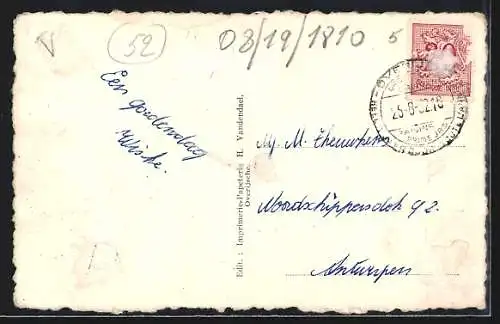 52
03/19/1810
5
Een goedendag
Wiske.
Edit. : Imprimerie-Papeterie H. Vandendael,
Overijsche.
23-8-52.18
My. M. Theunskens
Noordschippersdok 92.
Antwerpen